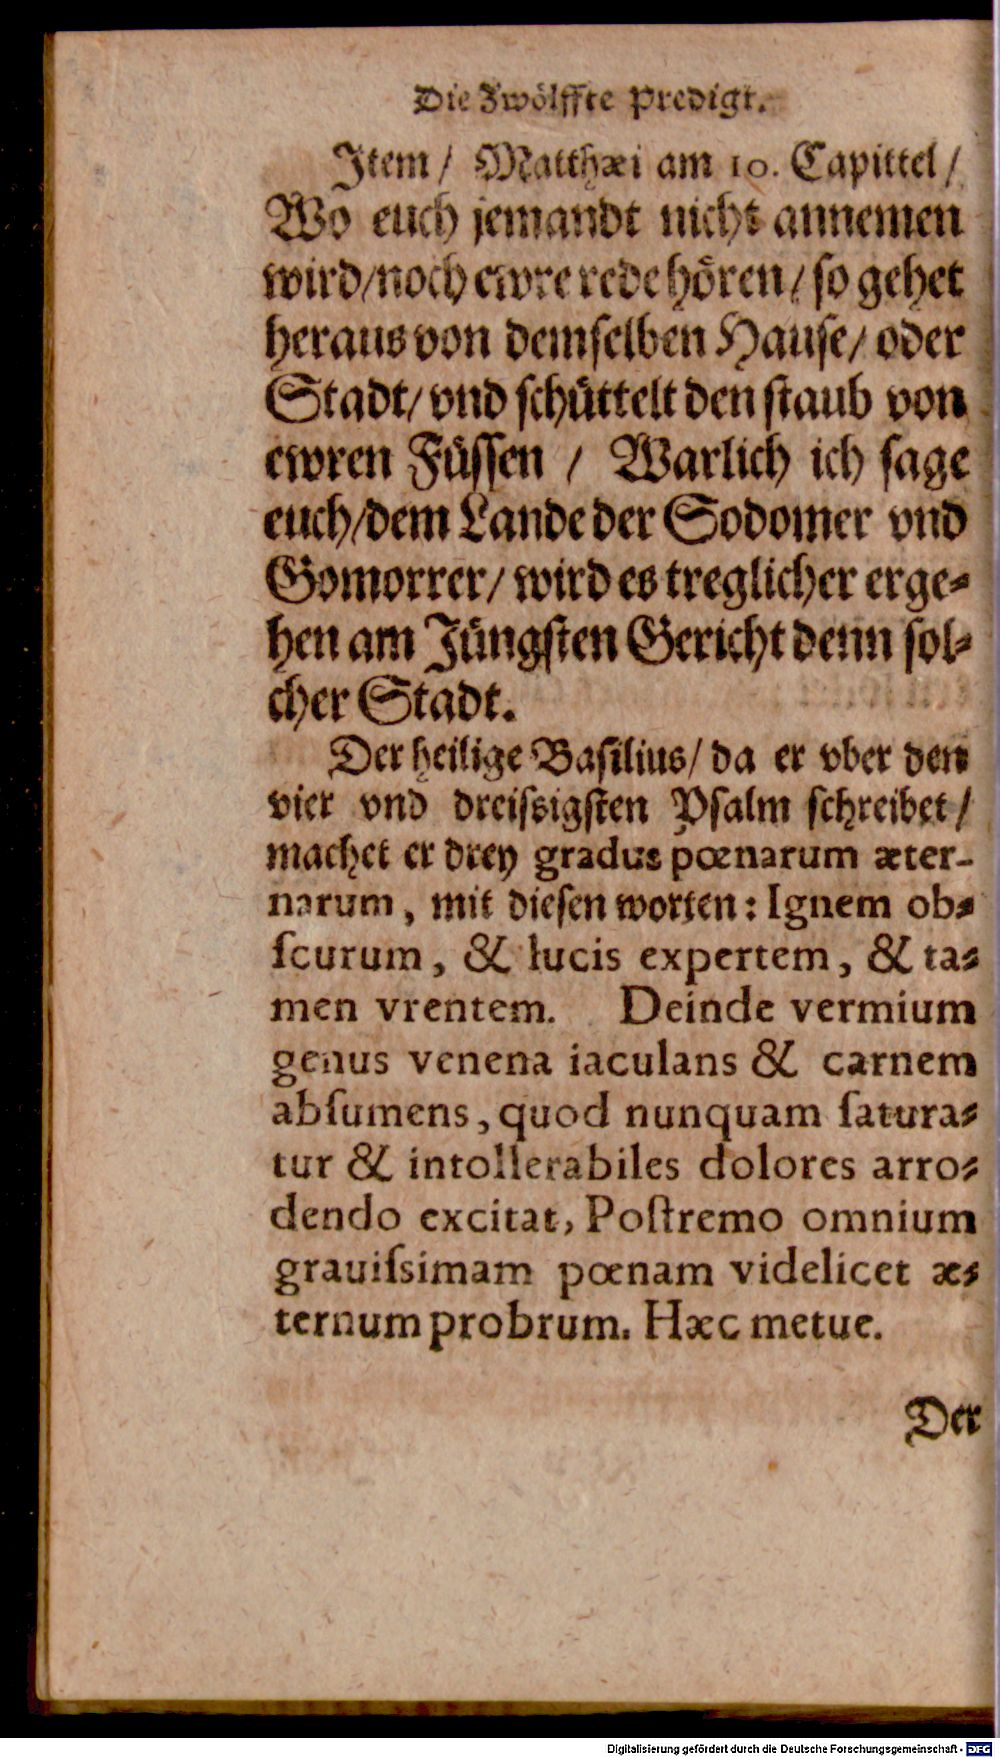 Die Zwölffte Predigt.
Item/ Matthæi am 10. Capittel/
Wo euch jemandt nicht annemen
wird/noch ewre rede hören/ so gehet
heraus von demselben Hause/ oder
Stadt/ vnd schüttelt den staub von
ewren Füssen / Warlich ich sage
euch/dem Lande der Sodomer vnd
Gomorrer/ wird es treglicher erge⸗
hen am Jüngsten Gericht denn sol⸗
cher Stadt.
Der heilige Basilius/ da er vber den
vier vnd dreissigsten Psalm schreibet/
machet er drey gradus pœnarum æter-
narum, mit diesen worten: Ignem ob⸗
ſcurum, & lucis expertem, & ta⸗
men vrentem. Deinde vermium
genus venena iaculans & carnem
abſumens, quod nunquam ſatura⸗
tur & intollerabiles dolores arro⸗
dendo excitat, Poſtremo omnium
grauiſsimam pœnam videlicet æ⸗
ternum probrum. Hæc metue.
Der
Digitalisierung gefördert durch die Deutsche Forschungsgemeinschaft - DFG